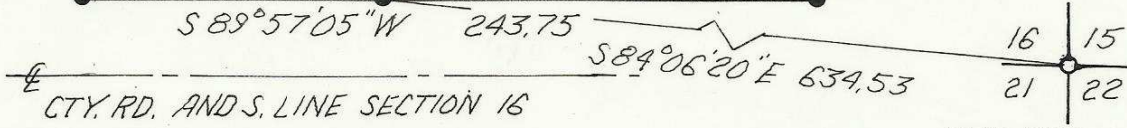 S 89°57'05"W 243.75
S 84°06'20"E 634.53
16 15
21 22
℄
CTY. RD. AND S. LINE SECTION 16